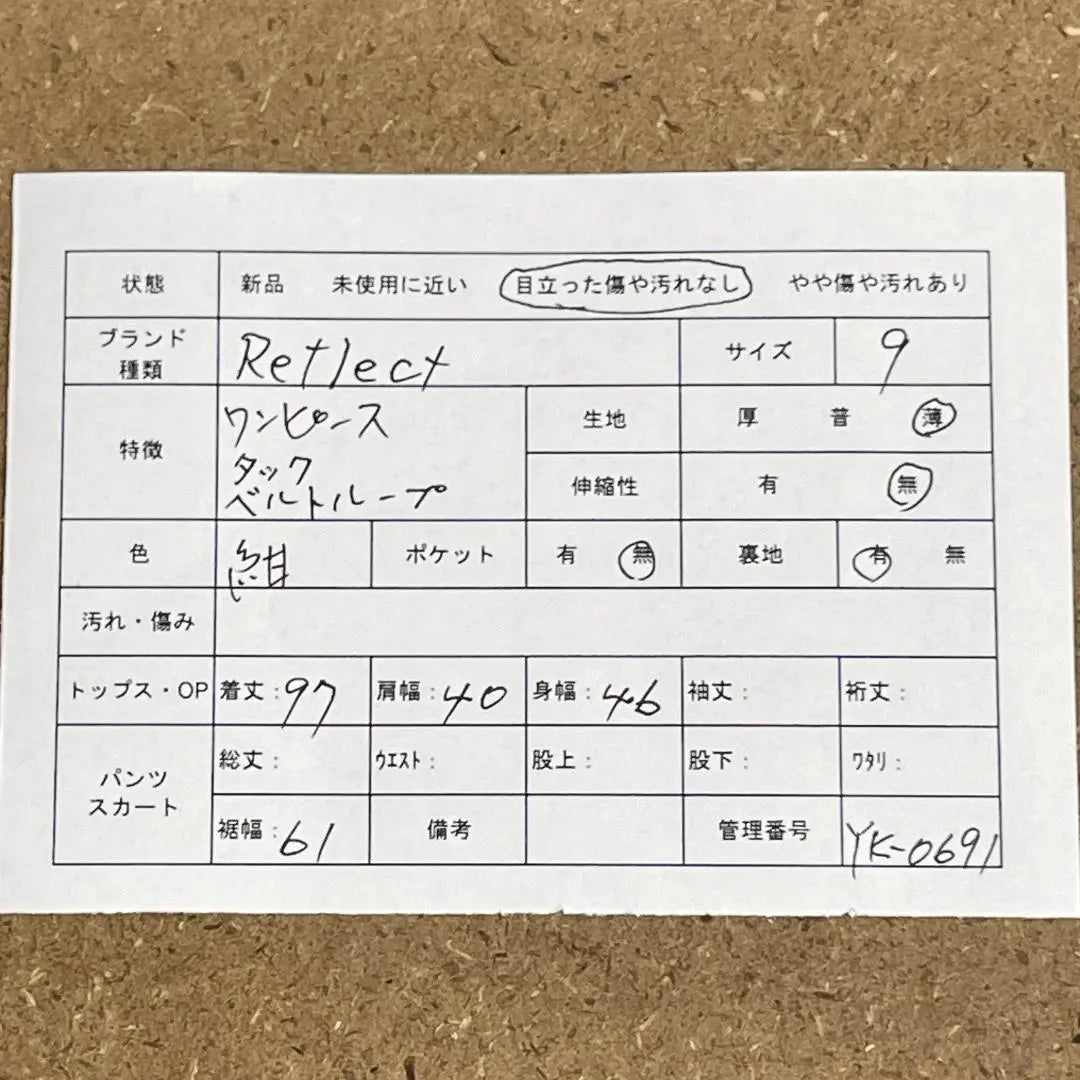 状態 新品 未使用に近い 目立った傷や汚れなし やや傷や汚れあり
ブランド
種類 Reflect サイズ 9
特徴 ワンピース
タック
ベルトループ
生地 厚 普 薄
伸縮性 有 無
色 紺 ポケット 有 無 裏地 有 無
汚れ・傷み
トップス・OP 着丈:97 肩幅:40 身幅:46 袖丈: 裄丈:
パンツ
スカート
総丈: ウエスト: 股上: 股下: ワタリ:
裾幅:61 備考 管理番号 YK-0691